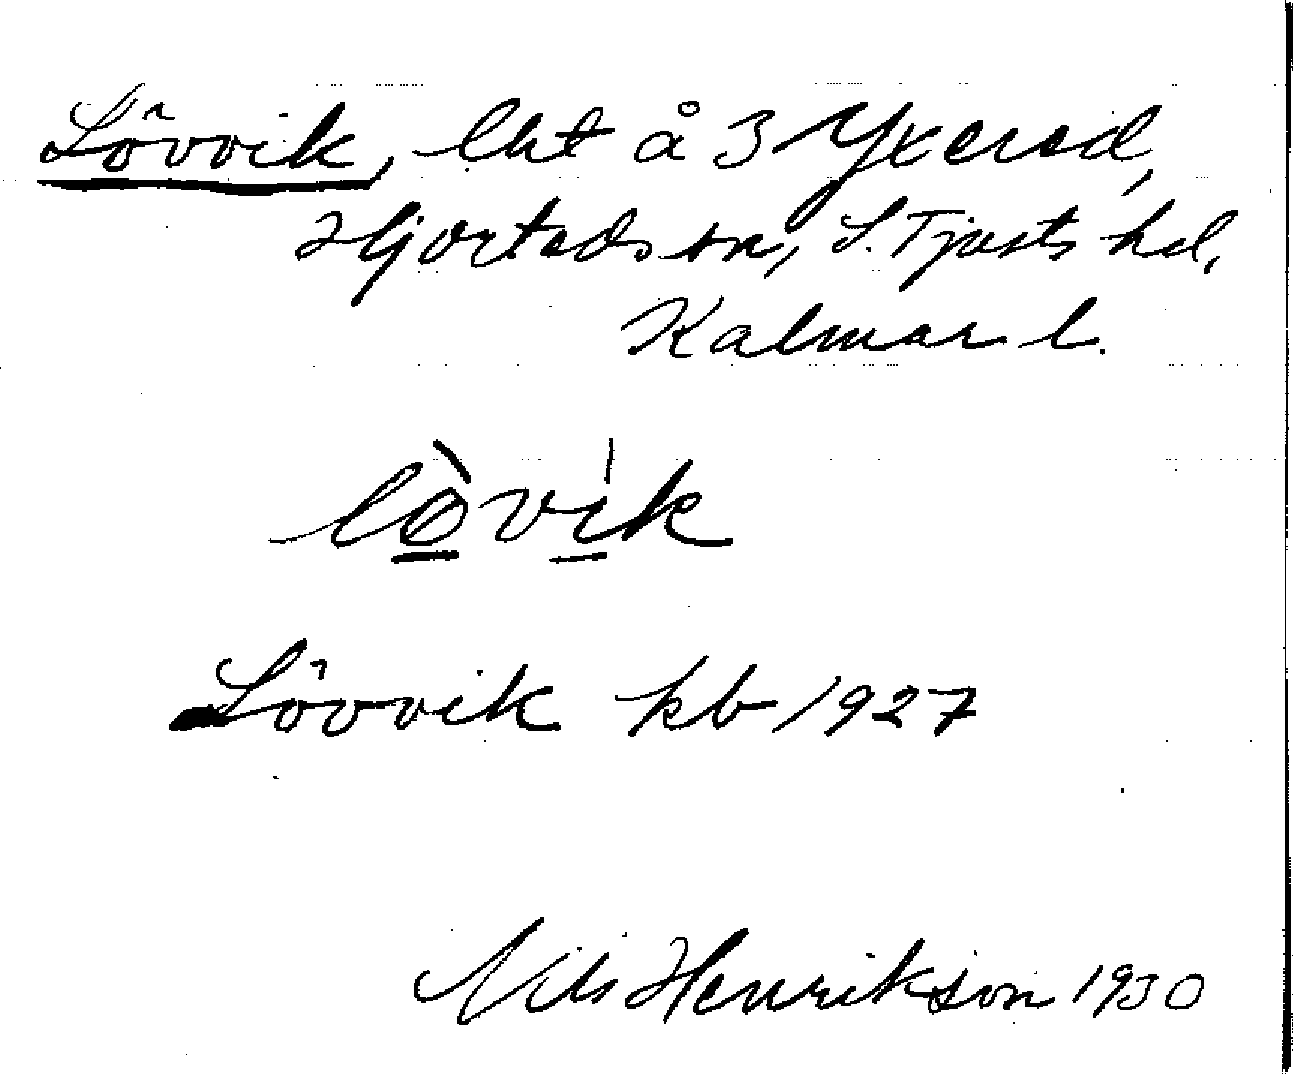 Lövvik, lht å 3 Yxered,
Hjorteds sn, S. Tjusts hd,
Kalmar l.
lø̀vik
Lövvik kb 1927
Nils Henrikson 1930